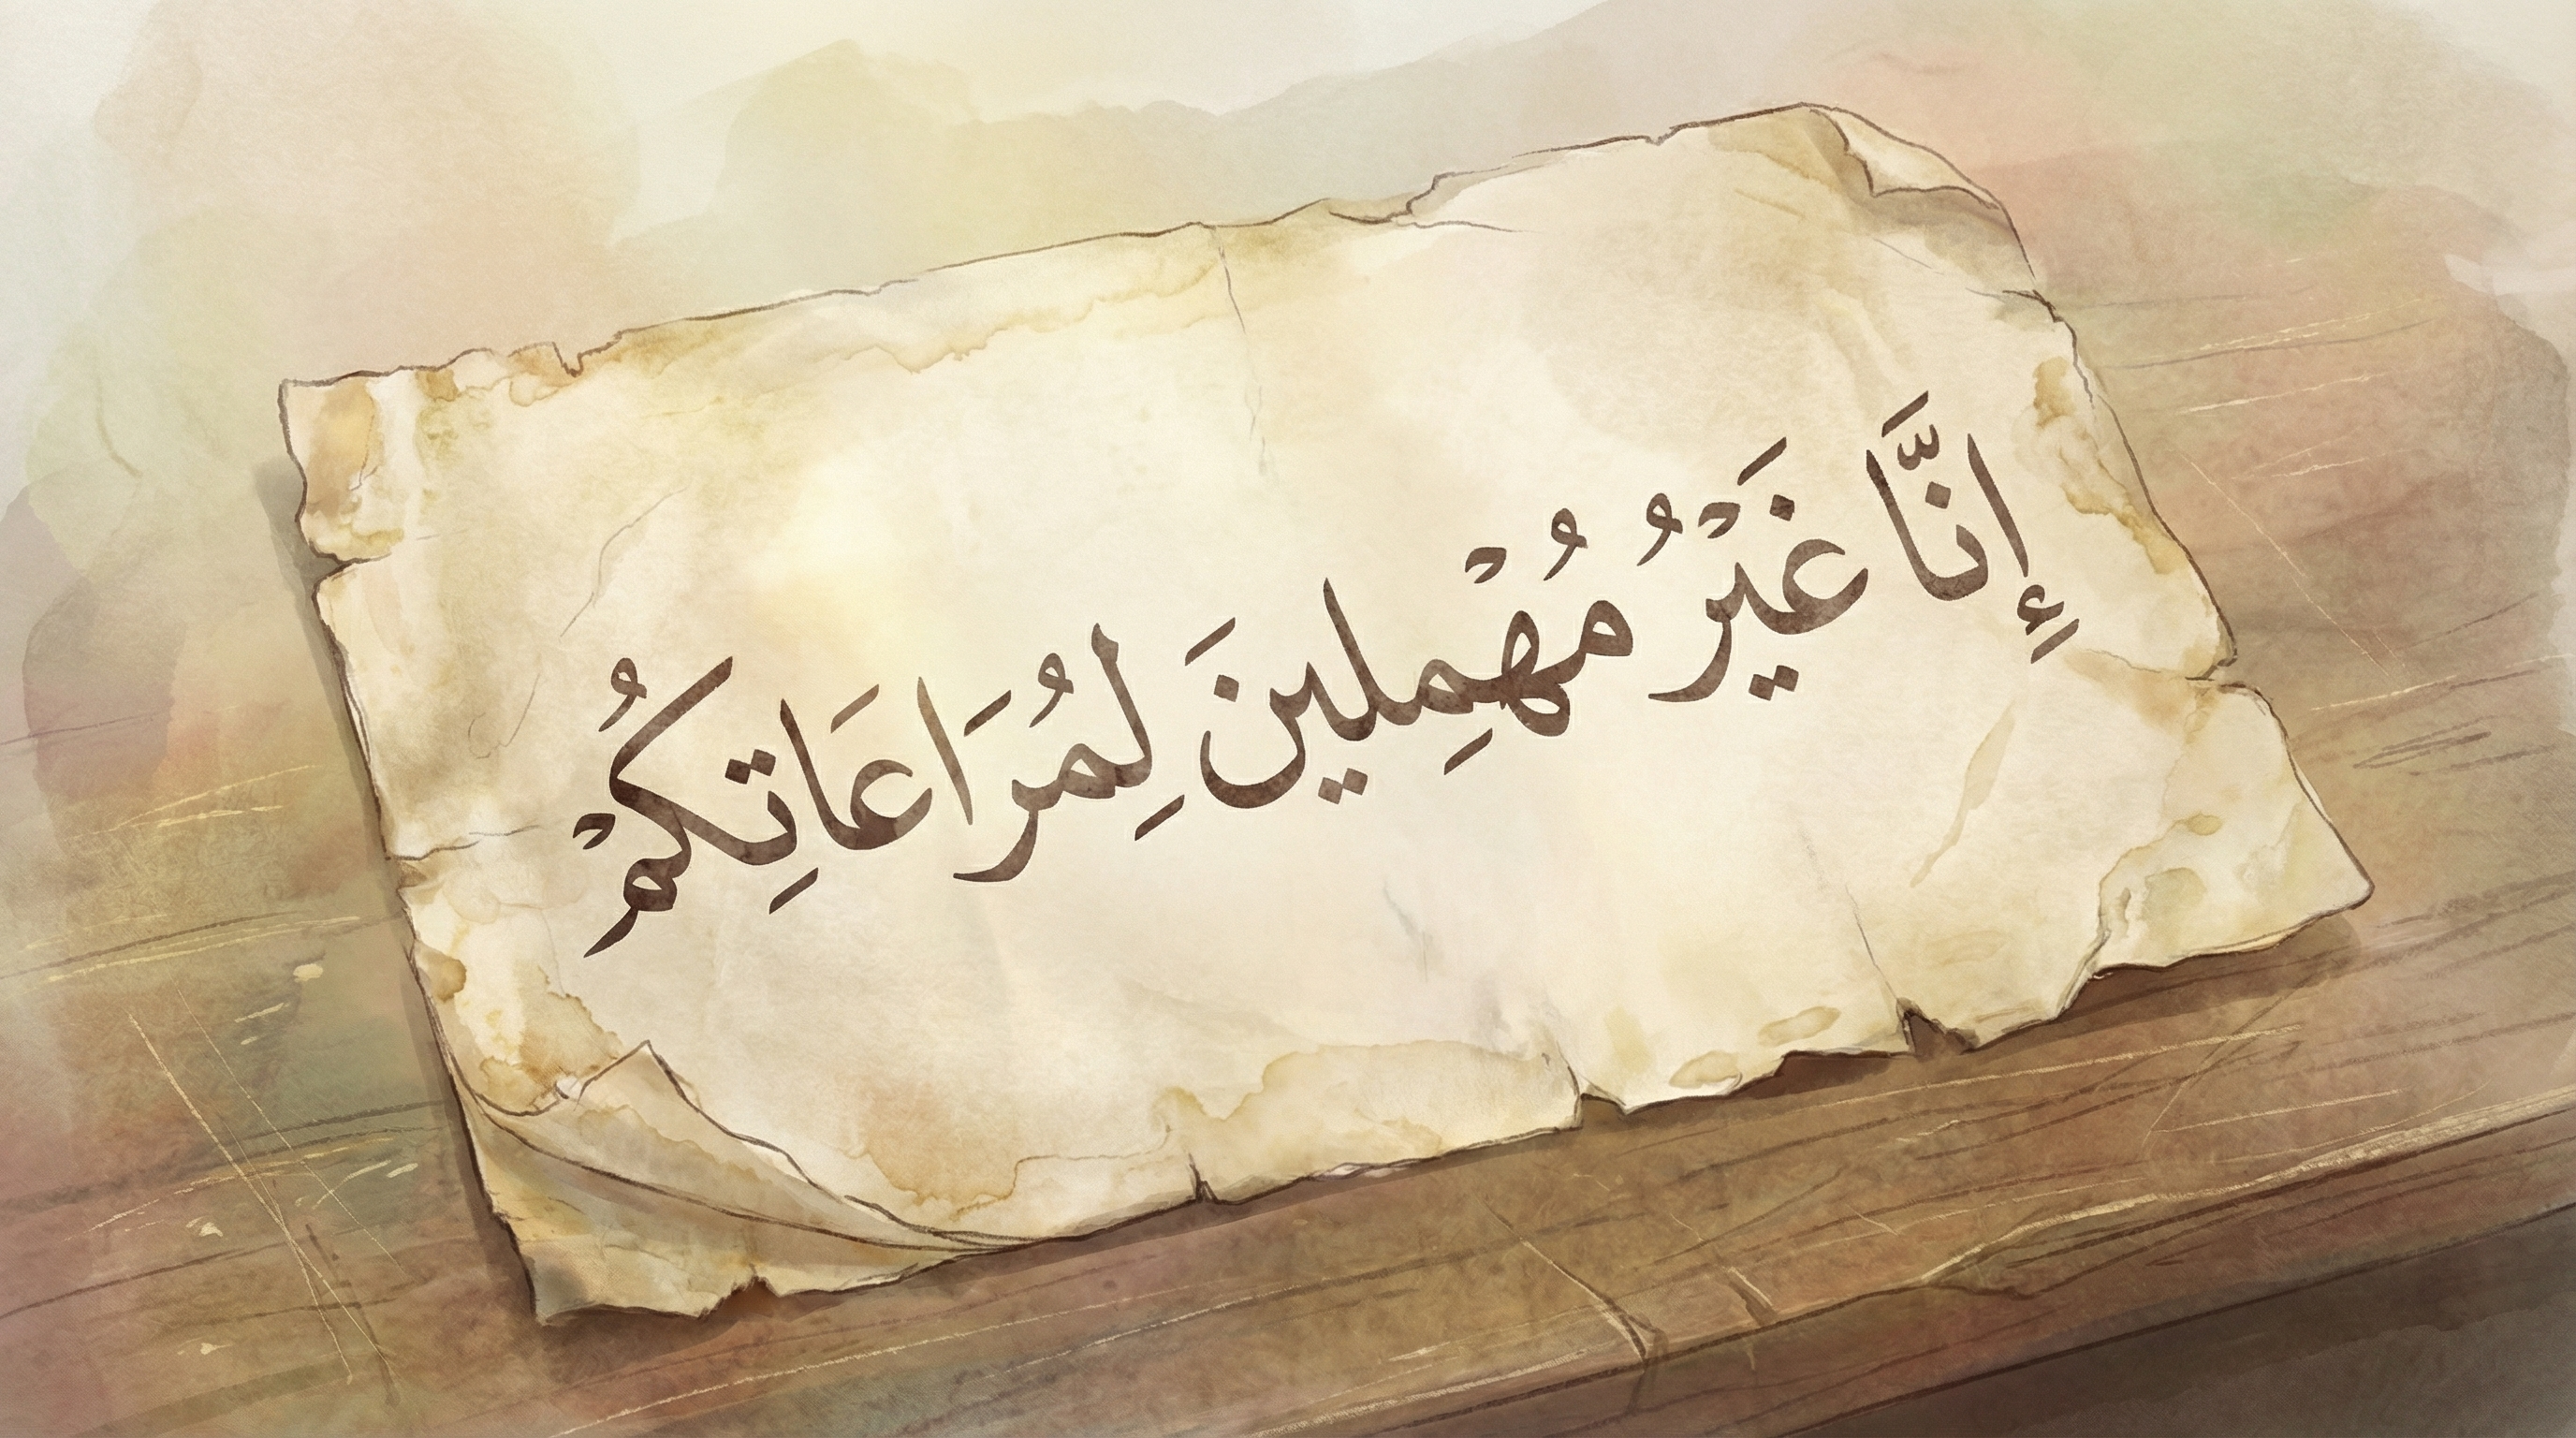 إِنَّا غَيْرُ مُهْمِلينَ لِمُرَاعَاتِكُمْ